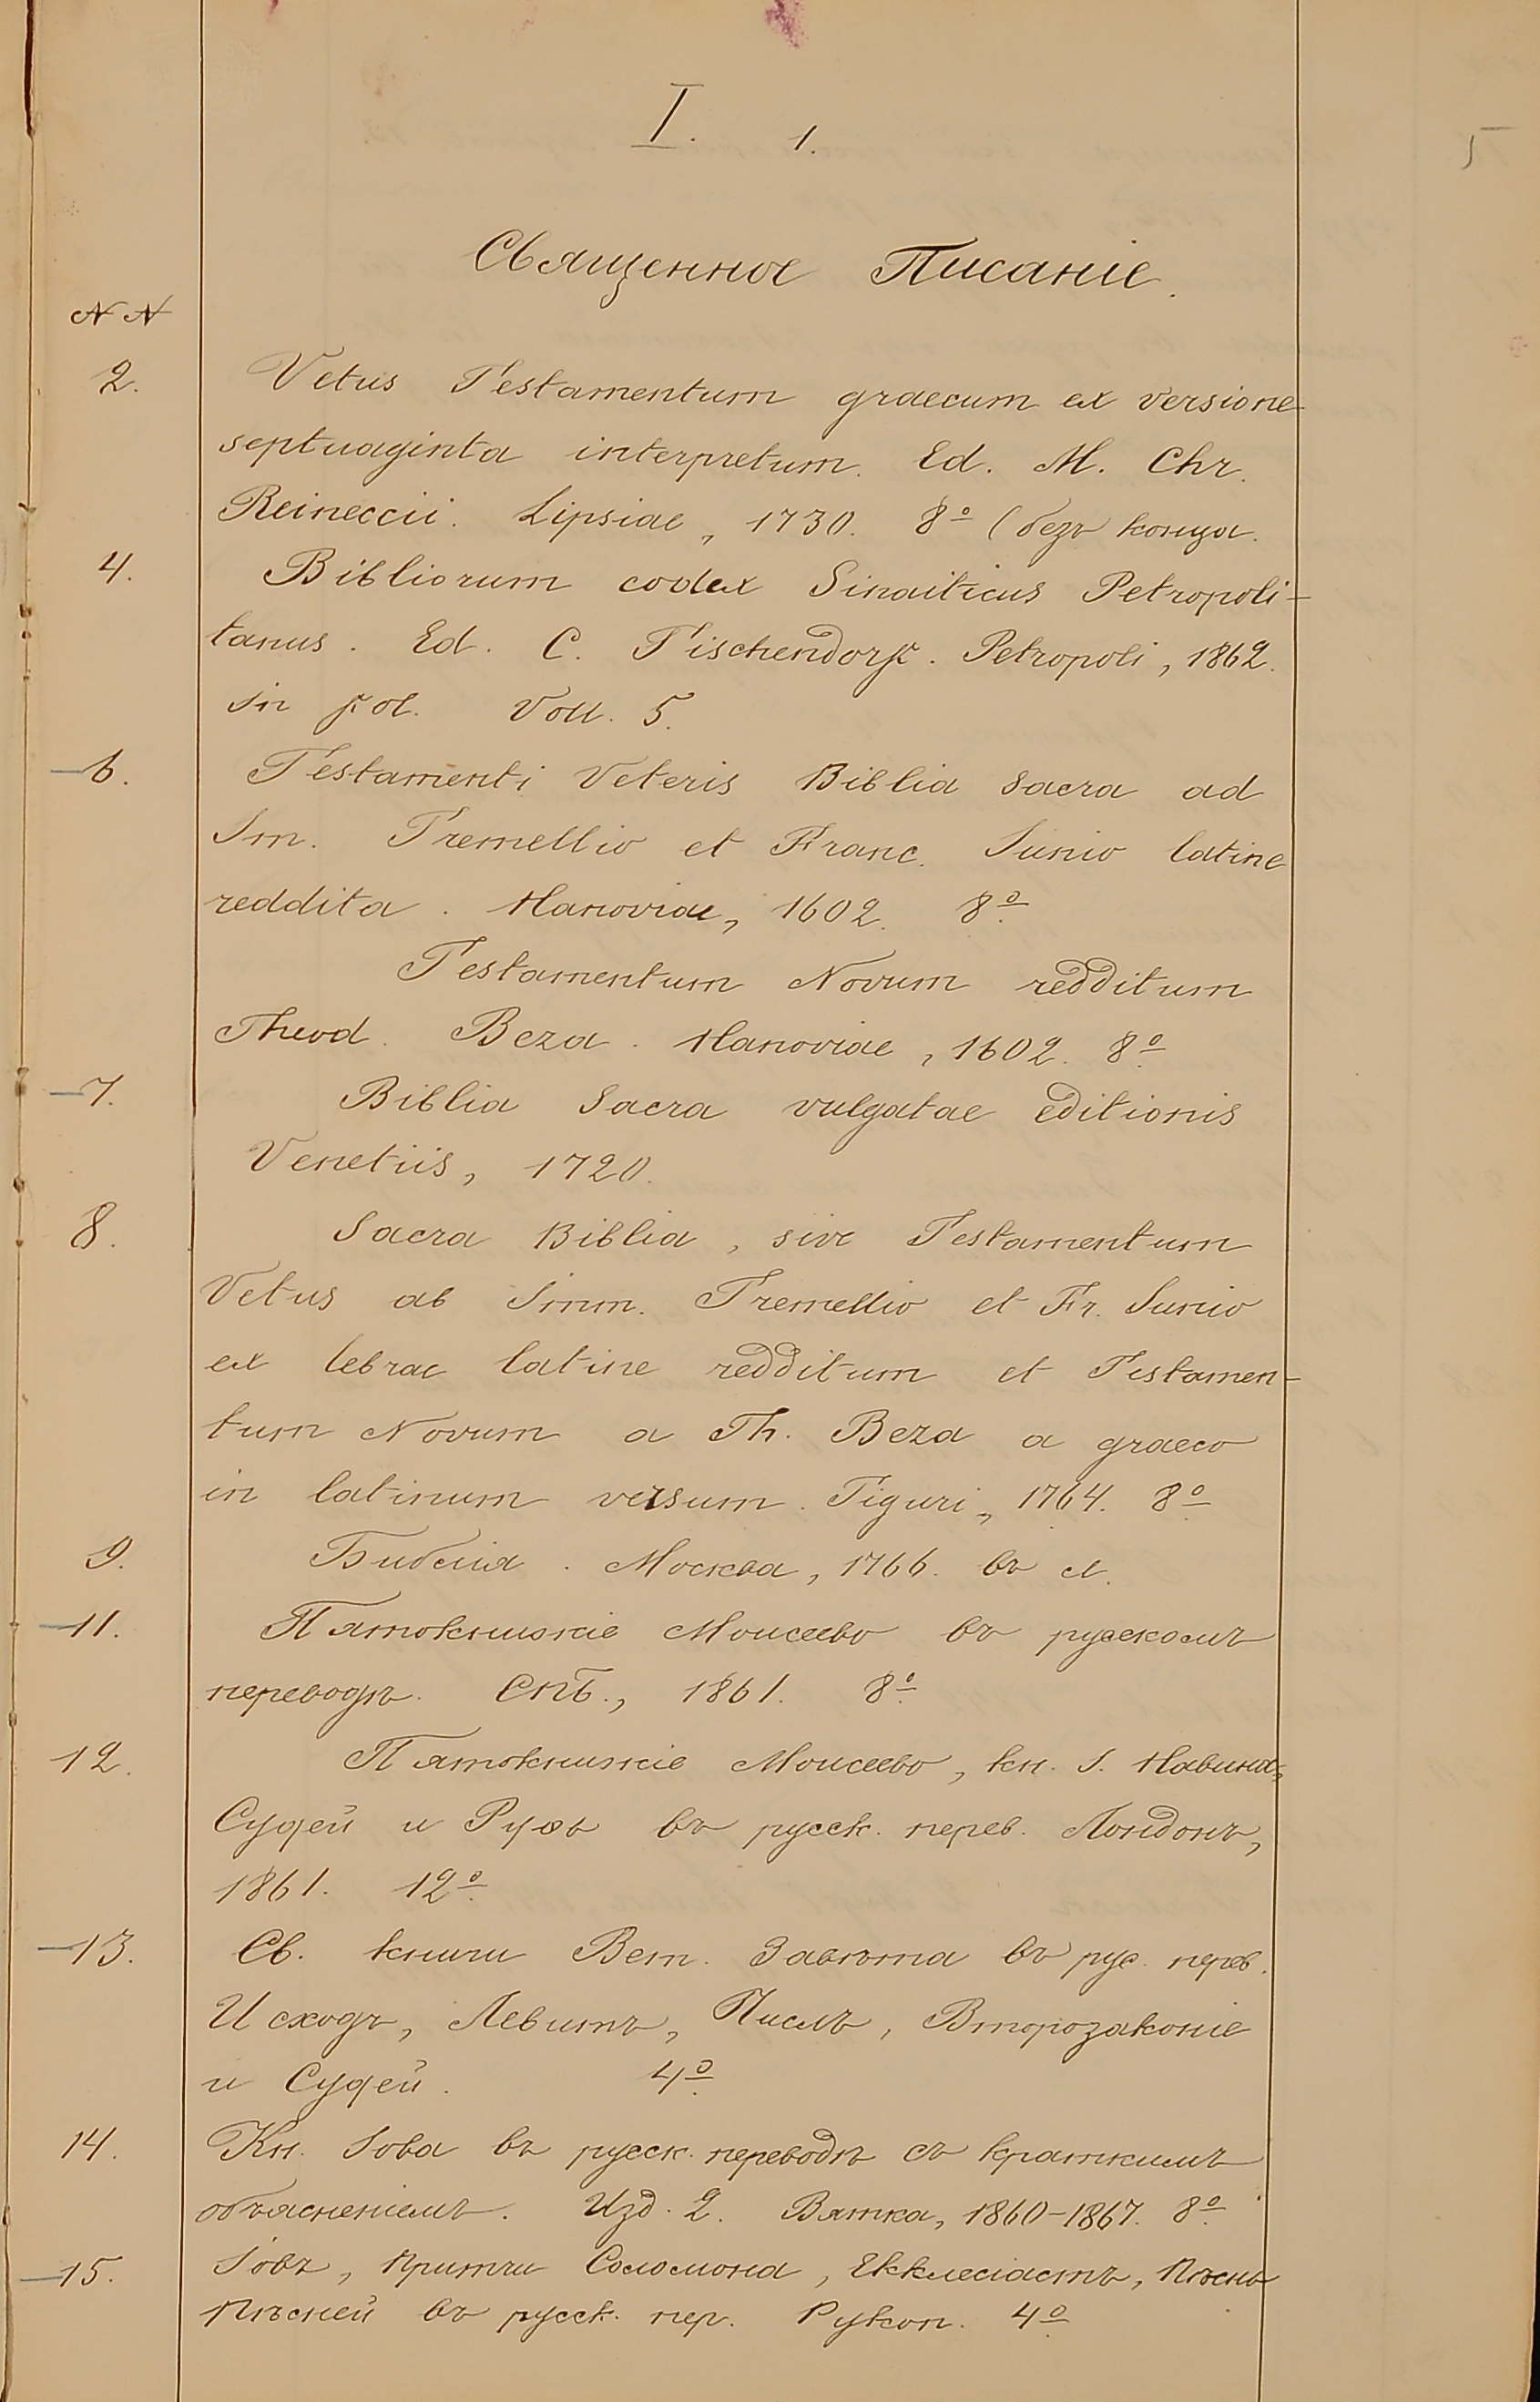 I. 1.
5
Священное Писаніе.
NN
2. Vetus Testamentum graecum ex versione
septuaginta interpretum. Ed. M. Chr.
Reineccii. Lipsiae, 1730. 8º (безъ конца.
4. Bibliorum codex Sinaiticus Petropoli-
tanus. Ed. C. Tischendorf. Petropoli, 1862.
in fol. Voll. 5.
6. Testamenti Veteris Biblia sacra ad
Im. Tremellio et Franc. Junio latine
reddita. Hanoviae, 1602. 8º
Testamentum Novum redditum
Theod. Beza. Hanoviae, 1602. 8º
7. Biblia Sacra vulgatae editionis
Venetiis, 1720.
8. Sacra Biblia, sive Testamentum
Vetus ab Imm. Tremellio et Fr. Junio
ex lebrae latine redditum et Testamen-
tum Novum a Th. Beza a graeco
in latinum versum. Tiguri, 1764. 8º
9. Библія. Москва, 1766. въ л.
11. Пятокнижіе Моисеево въ русскомъ
переводѣ. Спб., 1861. 8º
12. Пятокнижіе Моисеево, кн. І. Навина,
Судей и Руѳь въ русск. перев. Лондонъ,
1861. 12º
13. Св. книги Вет. Завѣта въ рус. перев.
Исходъ, Левитъ, Числъ, Второзаконіе
и Судей. 4º
14. Кн. Іова въ русск. переводѣ съ краткимъ
объясненіемъ. Изд. 2. Вятка, 1860-1867. 8º
15. Іовъ, Притчи Соломона, Екклесіастъ, Пѣснь
Пѣсней въ русск. пер. Рукоп. 4º